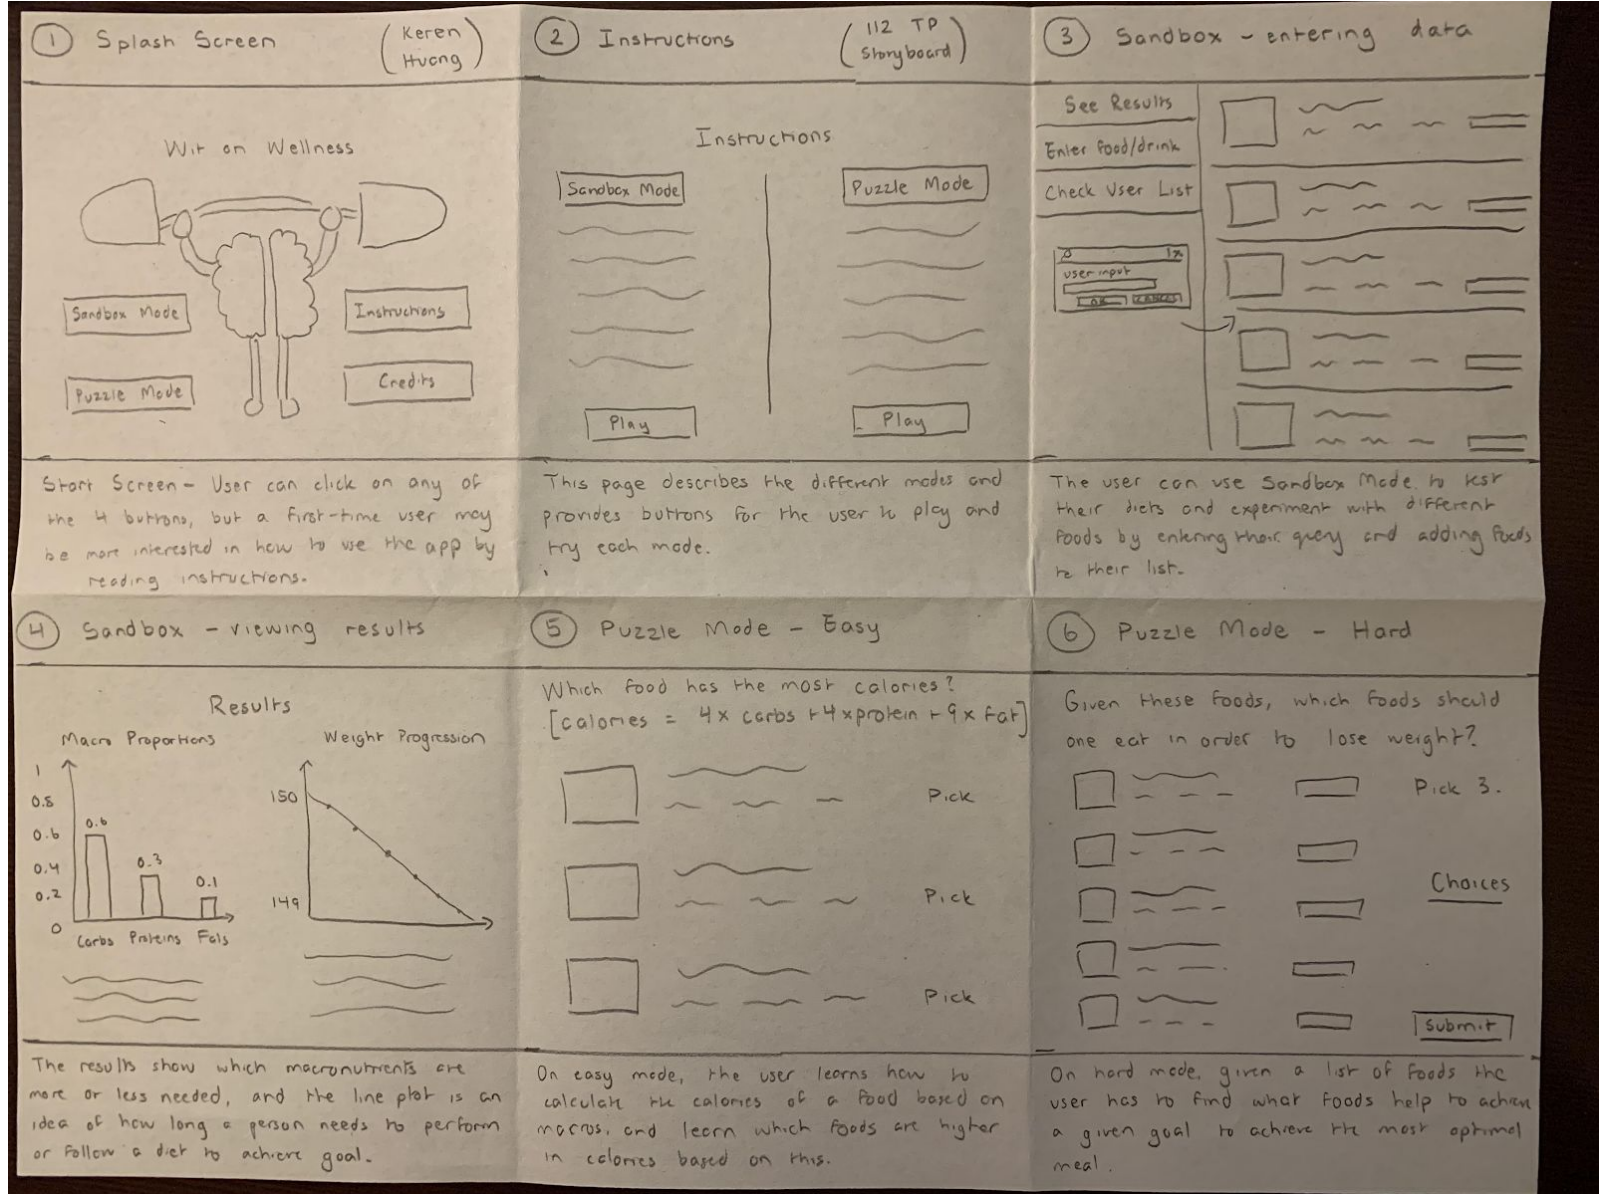 1 Splash Screen (Keren Huong)
Wit on Wellness
Sandbox Mode
Instructions
Puzzle Mode
Credits
Start Screen - User can click on any of
the 4 buttons, but a first-time user may
be more interested in how to use the app by
reading instructions.
2 Instructions (112 TP Storyboard)
Instructions
Sandbox Mode
Puzzle Mode
Play
Play
This page describes the different modes and
provides buttons for the user to play and
try each mode.
3 Sandbox - entering data
See Results
Enter food/drink
Check User List
user input
OK
CANCEL
The user can use Sandbox Mode to test
their diets and experiment with different
foods by entering their query and adding foods
to their list.
4 Sandbox - viewing results
Results
Macro Proportions
Weight Progression
1
0.8
0.6
0.4
0.2
0
0.6
0.3
0.1
Carbs Proteins Fats
150
149
The results show which macronutrients are
more or less needed, and the line plot is an
idea of how long a person needs to perform
or follow a diet to achieve goal.
5 Puzzle Mode - Easy
Which food has the most calories?
[calories = 4x carbs + 4x protein + 9x fat]
Pick
Pick
Pick
On easy mode, the user learns how to
calculate the calories of a food based on
macros, and learn which foods are higher
in calories based on this.
6 Puzzle Mode - Hard
Given these foods, which foods should
one eat in order to lose weight?
Pick 3.
Choices
Submit
On hard mode, given a list of foods the
user has to find what foods help to achieve
a given goal to achieve the most optimal
meal.